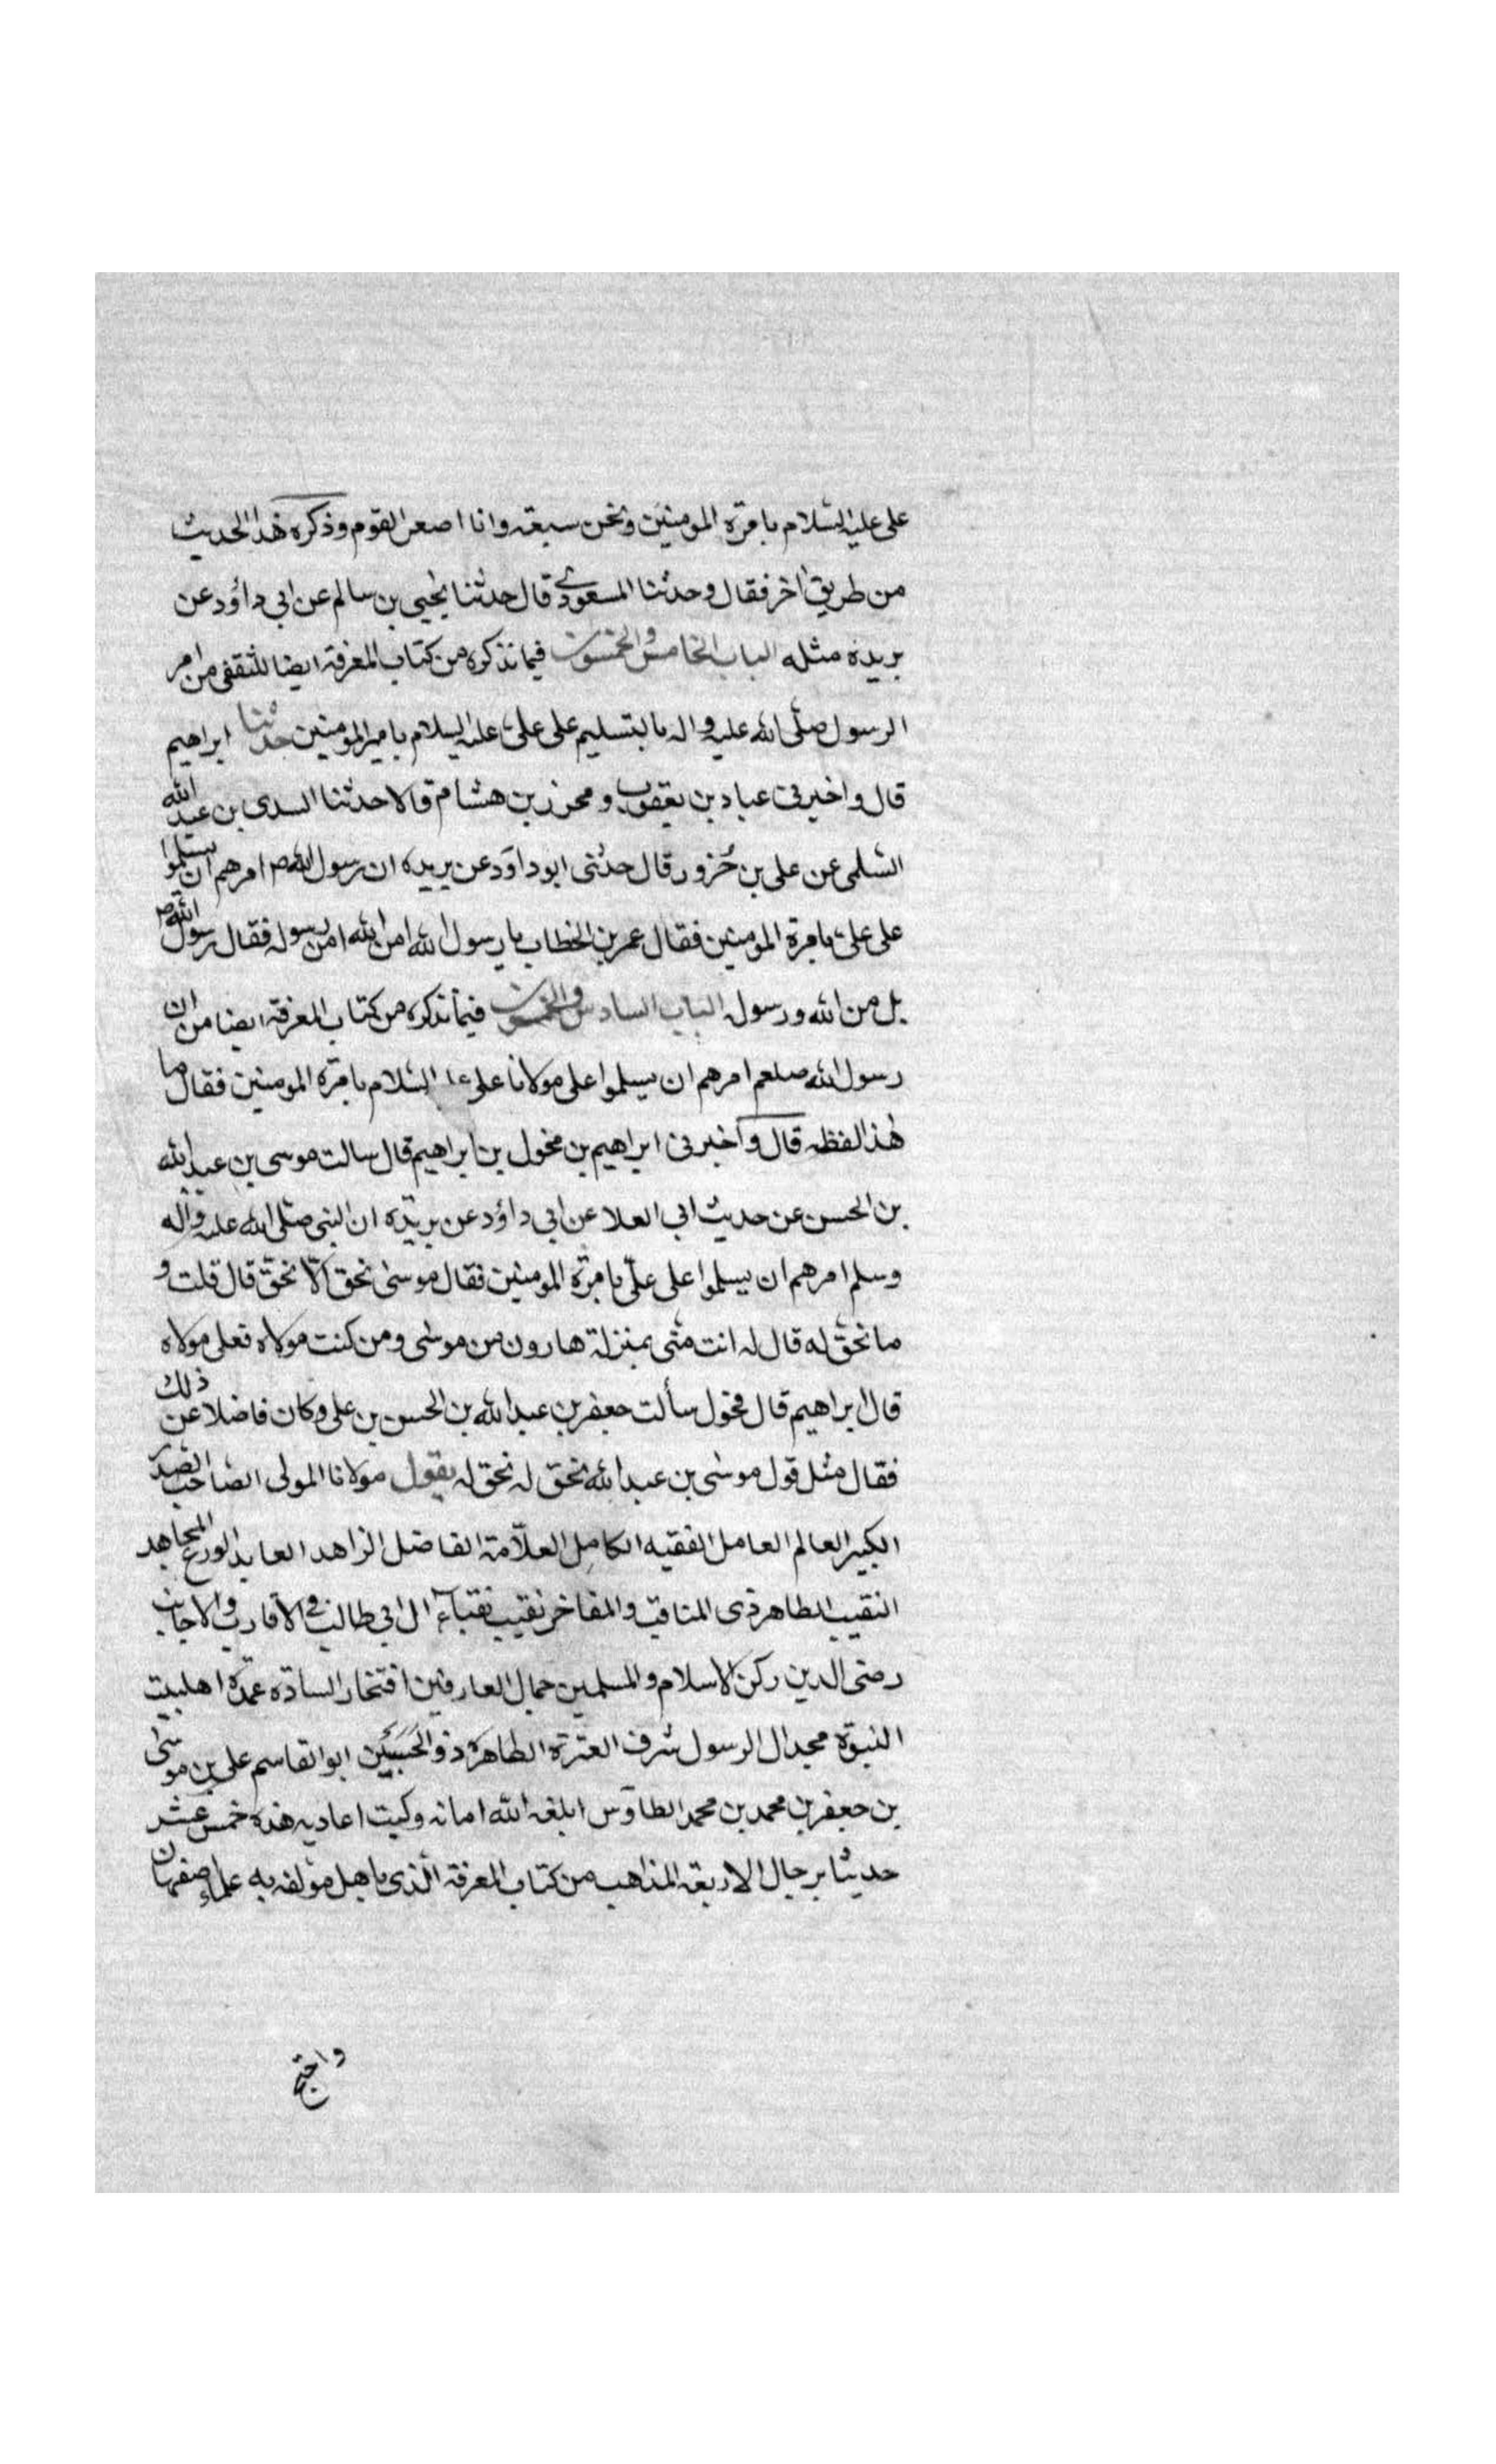 على عليه السلام بامرة المومنين ونحن سبعة وانا اصغر القوم وذكره هذا الحديث
من طريق اخر فقال وحدثنا المسعودي قال حدثنا يحيى بن سالم عن ابى داؤد عن
بريده مثله الباب الخامس والخمسون فيما نذكره من كتاب المعرفة ايضا للثقفى من امر
الرسول صلى الله عليه واله بالتسليم على على عليه السلام بامير المومنين حدثنا ابراهيم
قال واخبرنى عباد بن يعقوب ومحرز بن هشام قالا حدثنا السدى بن عبد الله
السلمى عن على بن خزور قال حدثنى ابو داود عن بريده ان رسول الله ص امرهم ان يسلموا
على على بامرة المومنين فقال عمر بن الخطاب يا رسول الله امن الله امن رسوله فقال رسول الله ص
بل من الله ورسوله الباب السادس والخمسون فيما نذكره من كتاب المعرفة ايضا من ان
رسول الله صلعم امرهم ان يسلموا على مولانا على السلام بامرة المومنين فقال ما
هذا لفظه قال واخبرنى ابراهيم بن مخول بن ابراهيم قال سالت موسى بن عبد الله
بن الحسن عن حديث ابى العلا عن ابى داؤد عن بريده ان النبى صلى الله عليه وآله
وسلم امرهم ان يسلموا على علي بامرة المومنين فقال موسى نحق الا نحق قال قلت و
ما نحق له قال له انت منى بمنزلة هارون من موسى ومن كنت مولاه فعلى مولاه
قال ابراهيم قال مخول سألت جعفر بن عبد الله بن الحسن بن على وكان فاضلا عن ذلك
فقال مثل قول موسى بن عبد الله نحق له نحق له يقول مولانا المولى الصاحب الصدر
الكبير العالم العامل الفقيه الكامل العلّامة الفاضل الزاهد العابد الورع المجاهد
النقيب الطاهر ذى المناقب والمفاخر نقيب نقباء آل ابى طالب فى الاقارب والاجانب
رضى الدين ركن الاسلام والمسلمين جمال العارفين افتخار السادة عمدة اهلبيت
النبوة مجد ال الرسول شرف العترة الطاهرة ذو الحسبين ابو القاسم على بن موسى
بن جعفر بن محمد بن محمد الطاوس ابلغه الله امانه وكبت اعاديه هذه خمس عشر
حديثا برجال الاربعة المذاهب من كتاب المعرفة الذى باهل مؤلفه به علماء اصفهان
واحتج